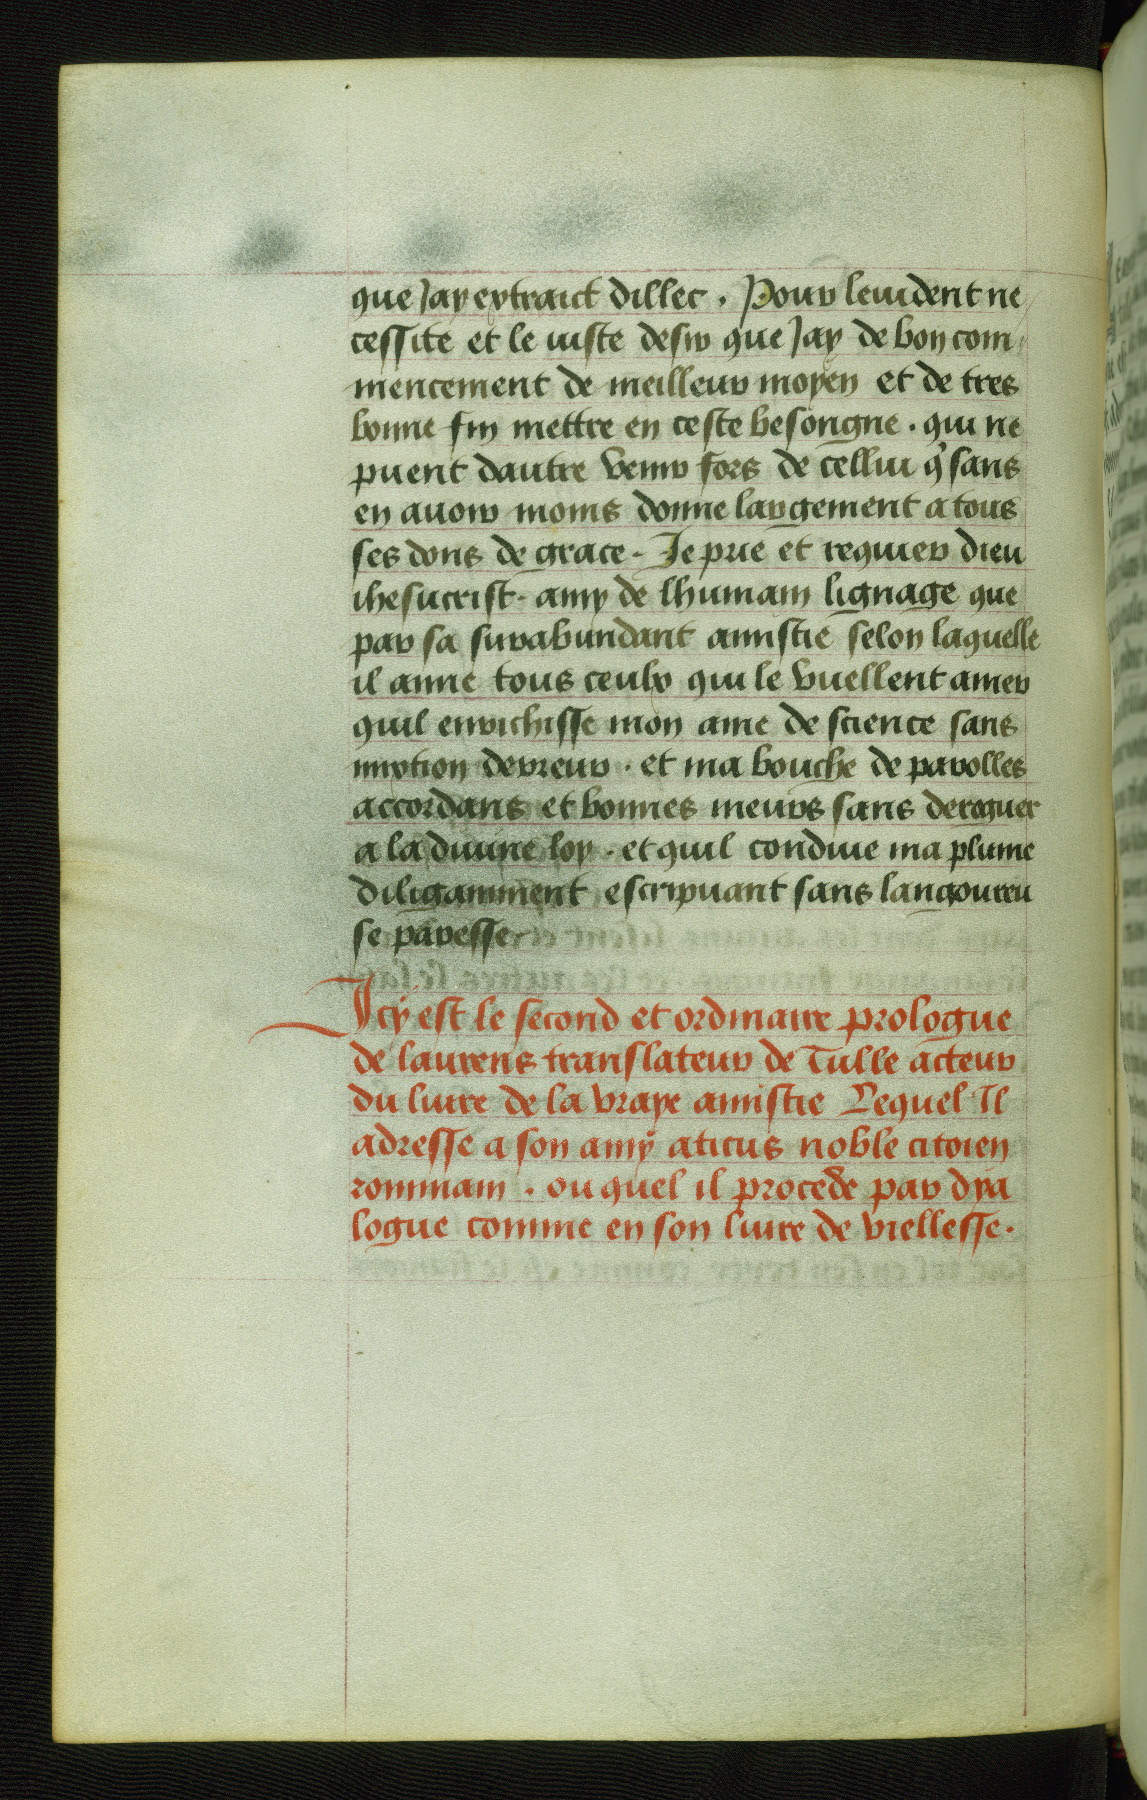 que Jay extraict dillec . Pour leuident ne
cessite et le iuste desir que Jay de bon com
mencement de meilleur moyen et de tres
bonne fin mettre en ceste besongne . qui ne
puent dautre venir fors de cellui q̃ sans
en auoir moins donne largement a tous
ses dons de grace . Je prie et requier dieu
ihesucrist . amy de lhumain lignage que
par sa surabundant amistie selon laquelle
il aime tous ceulx qui le vuellent amer
quil enrichisse mon ame de science sans
mixtion derreur . et ma bouche de parolles
accordans et bonnes meurs sans deroguer
a la diuine loy . et quil conduie ma plume
diligamment escripuant sans langoureu
se paresse .
Icy est le second et ordinaire prologue
de laurens translateur de Tulle acteur
du liure de la vraye amistie Lequel Il
adresse a son amy aticus noble citoien
rommain . ou quel il procede par dya
logue comme en son liure de viellesse .